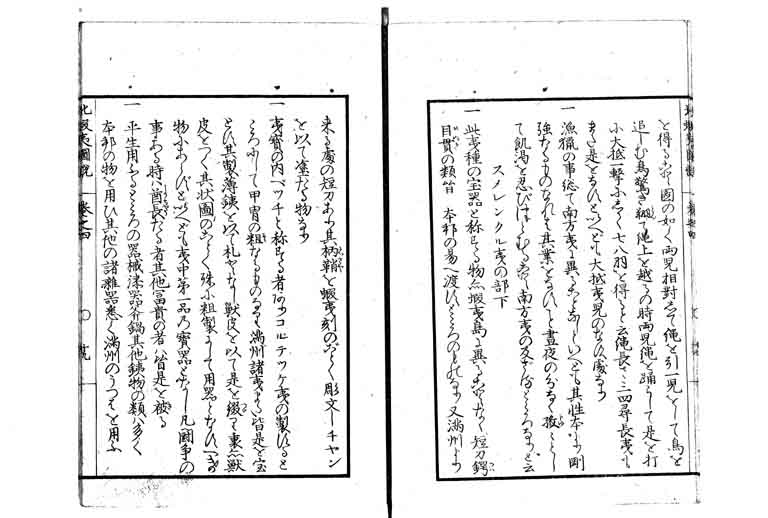 と得るあり図の如く両児相対して縄を引一児をして鳥を
追しむ鳥驚き飛て縄上を越るの時両児縄を踊らして是を打
小大抵一撃にして七八羽を得ると云縄長さ三四尋長夷も
また是をなすといへども大抵夷児のなす処なり
一 漁猟の事総て南方夷に異る事なしといへども其性本より剛
強なるものなれば其業をなすにも昼夜のわかちなく
て飢渇を忍びはげむる事南方夷の及ばざるところなりと云
スメレンクル夷の部下
一 此夷種の宝器と称する物亦蝦夷島に異る事なく短刀鍔
目貫の類皆 本邦の易へ渡すところのものなり又満州より
来る処の短刀あり其柄鞘を蝦夷刻のごとく彫文しチヤン
を以て塗たる物なり
一 夷宝の内ベツチと称する者ありコルデツケ夷の製すると
ころにして甲冑の粗なるものなり満州諸夷また皆是を宝
とす其製薄鉄を以て札となし獣皮を以て是を綴て裏亦獣
皮をつく其状図のごとく殊に粗製にして用器となすべき
物にあらずといへども夷中第一品の宝器となし凡闘争の
事ある時は酋長たる者其他富貴の者は皆是を被る
一 平生用ふるところの器械漆器斧鍋其他鉄物の類は多く
本邦の物を用ひ其他の諸雑器悉く満州のうつはを用ふ
北蝦夷図説 巻之四